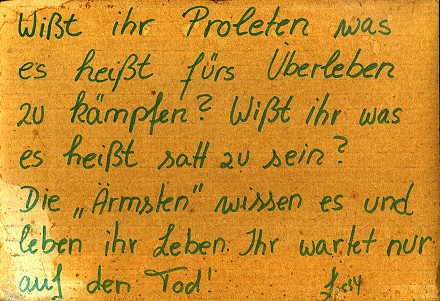 Wißt ihr Proleten was
es heißt fürs Überleben
zu kämpfen? Wißt ihr was
es heißt satt zu sein?
Die „Ärmsten" wissen es und
leben ihr Leben. Ihr wartet nur
auf den Tod!